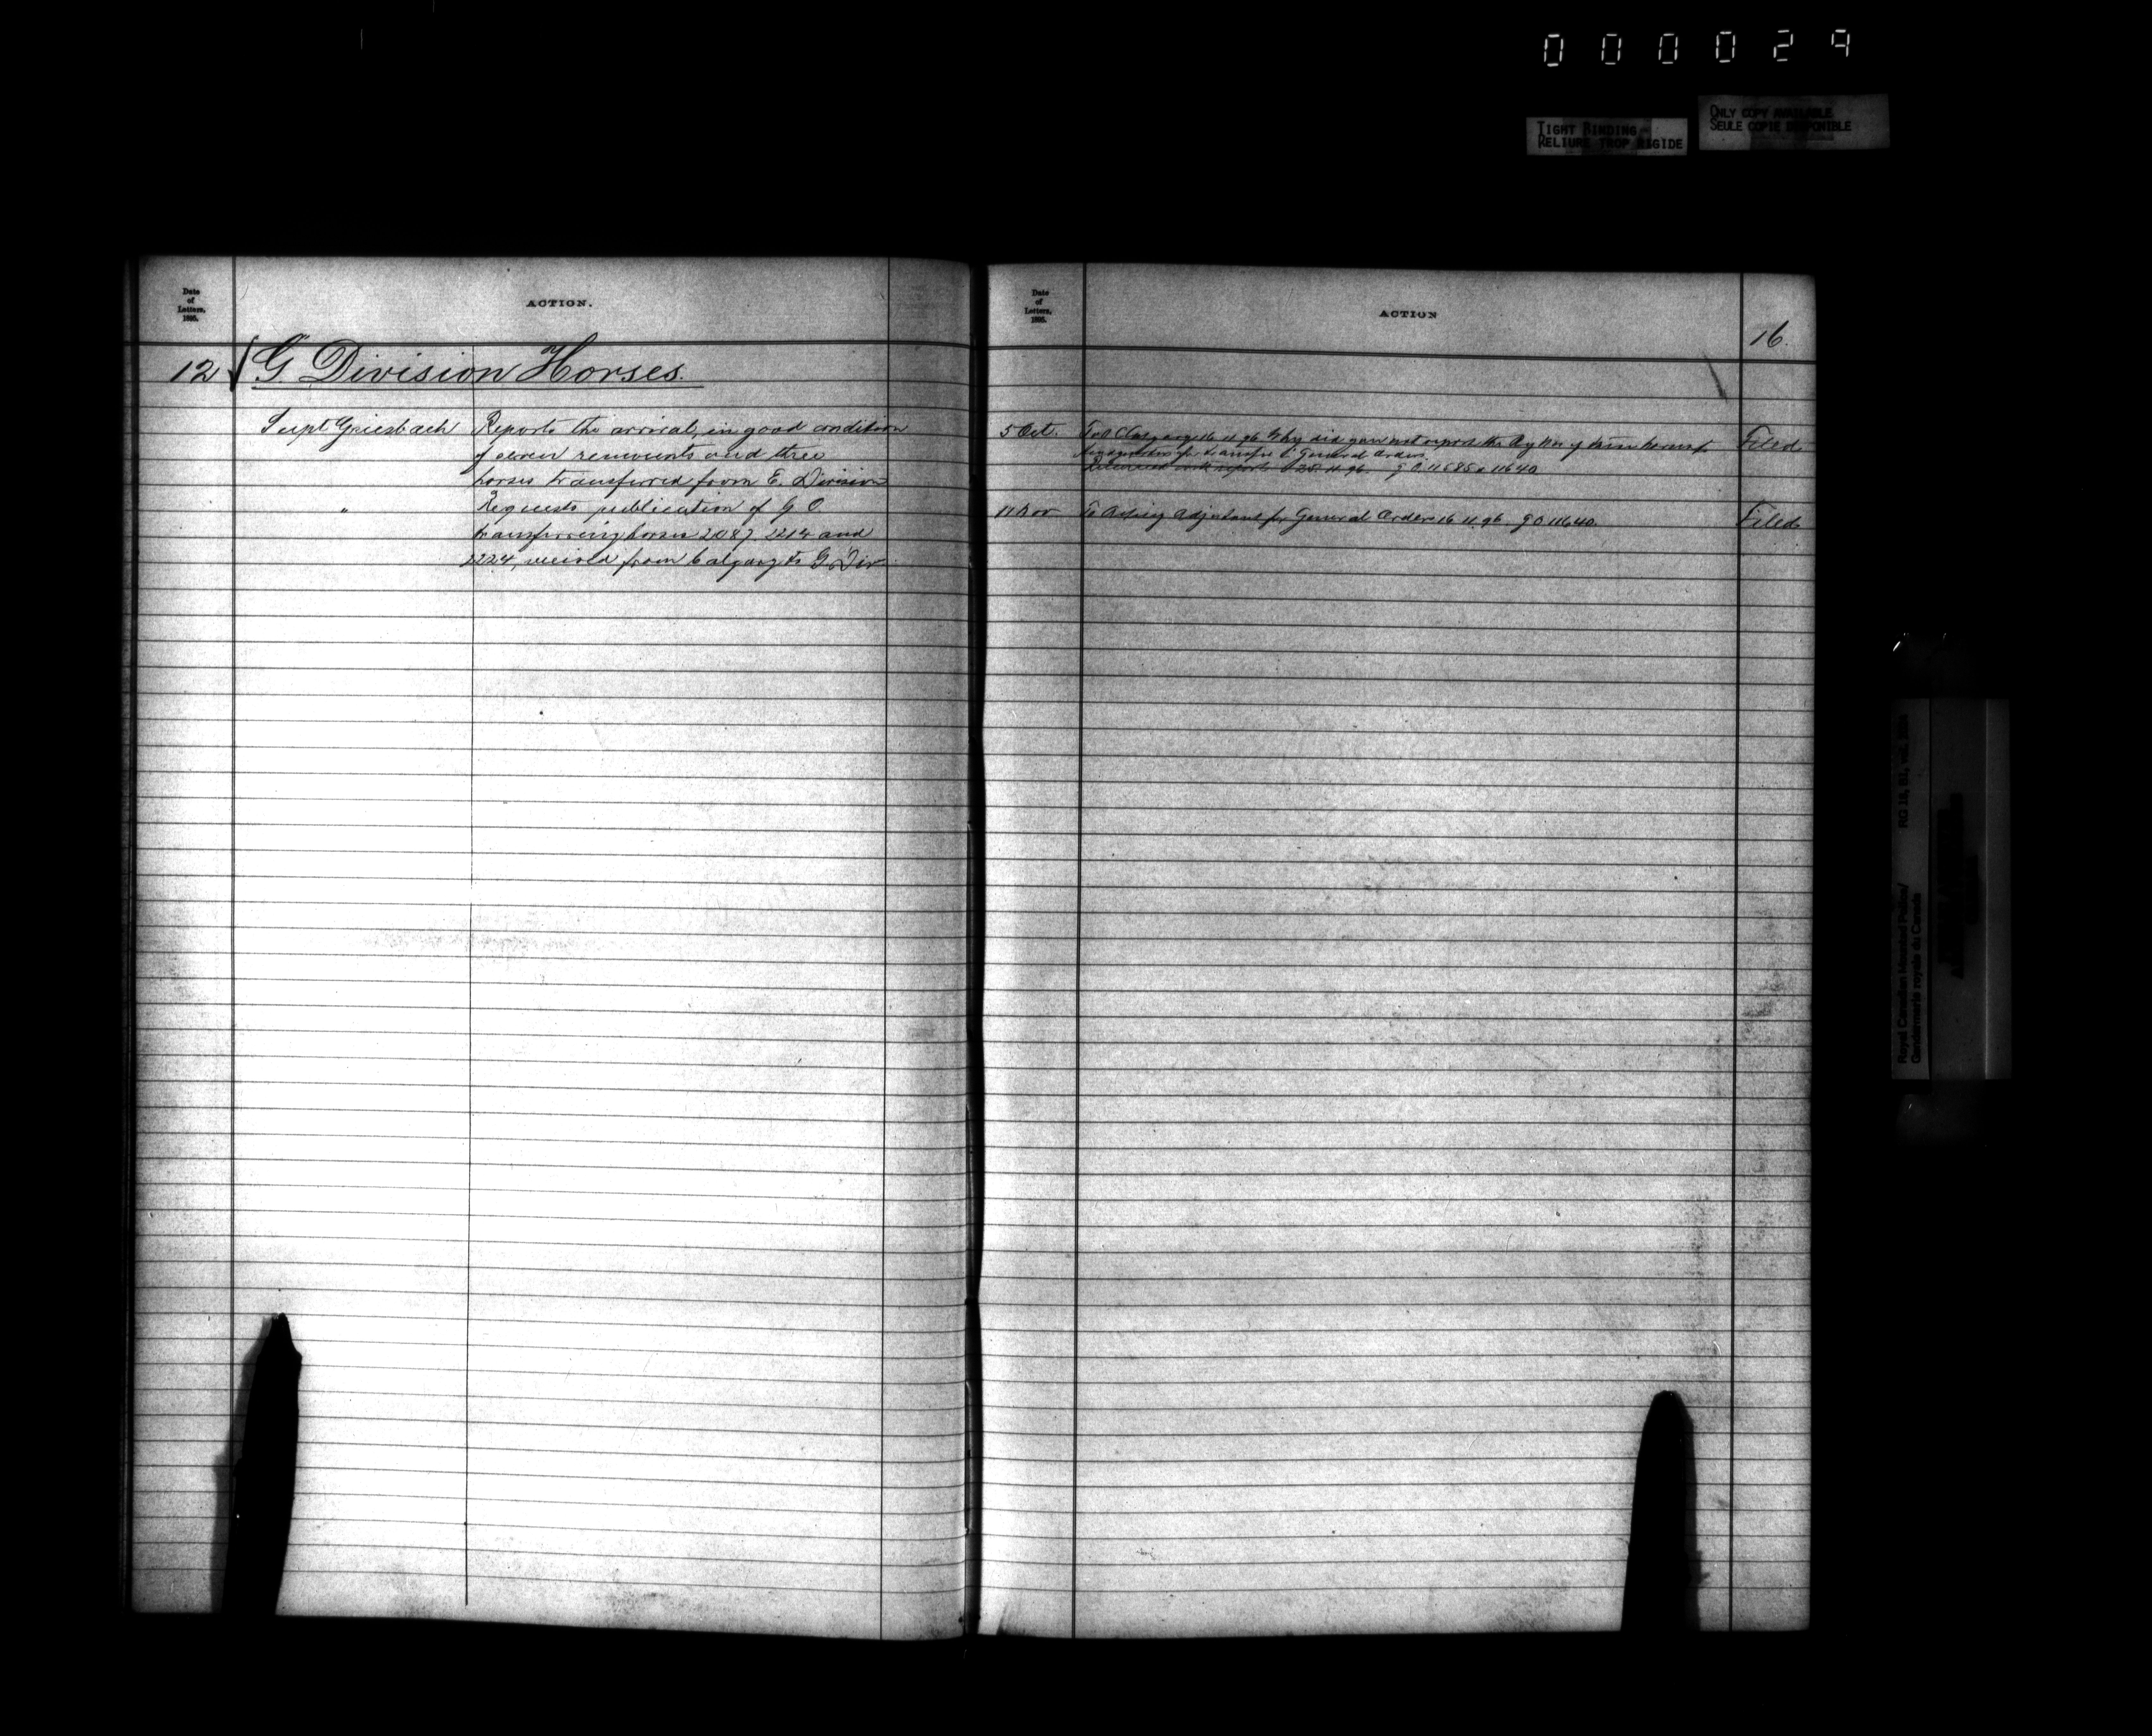 000029
TIGHT BINDING
RELIURE TROP RIGIDE
ONLY COPY AVAILABLE
SEULE COPIE DISPONIBLE
Date
of
Letters,
1895.
ACTION.
12 G. Division Horses.
Supt Griesbach Reports the arrival, in good condition
of seven remounts and three
horses transferred from E. Division
" Requests publication of G O
transferring horses 2087, 2214 and
2224, received from Calgary to G. Div.
Date
of
Letters,
1895.
ACTION
16.
5 Oct. To O C Calgary 16 11 96 Why did you not report the Reg Nos of these horses Filed
for transfer in General Orders.
Returned with report 25.11.96. G O 11585 & 11640
11 Nov To Acting Adjutant for General Orders 16 11 96 G O 11640. Filed
Royal Canadian Mounted Police/
Gendarmerie royale du Canada
RG 18, B1, vol.